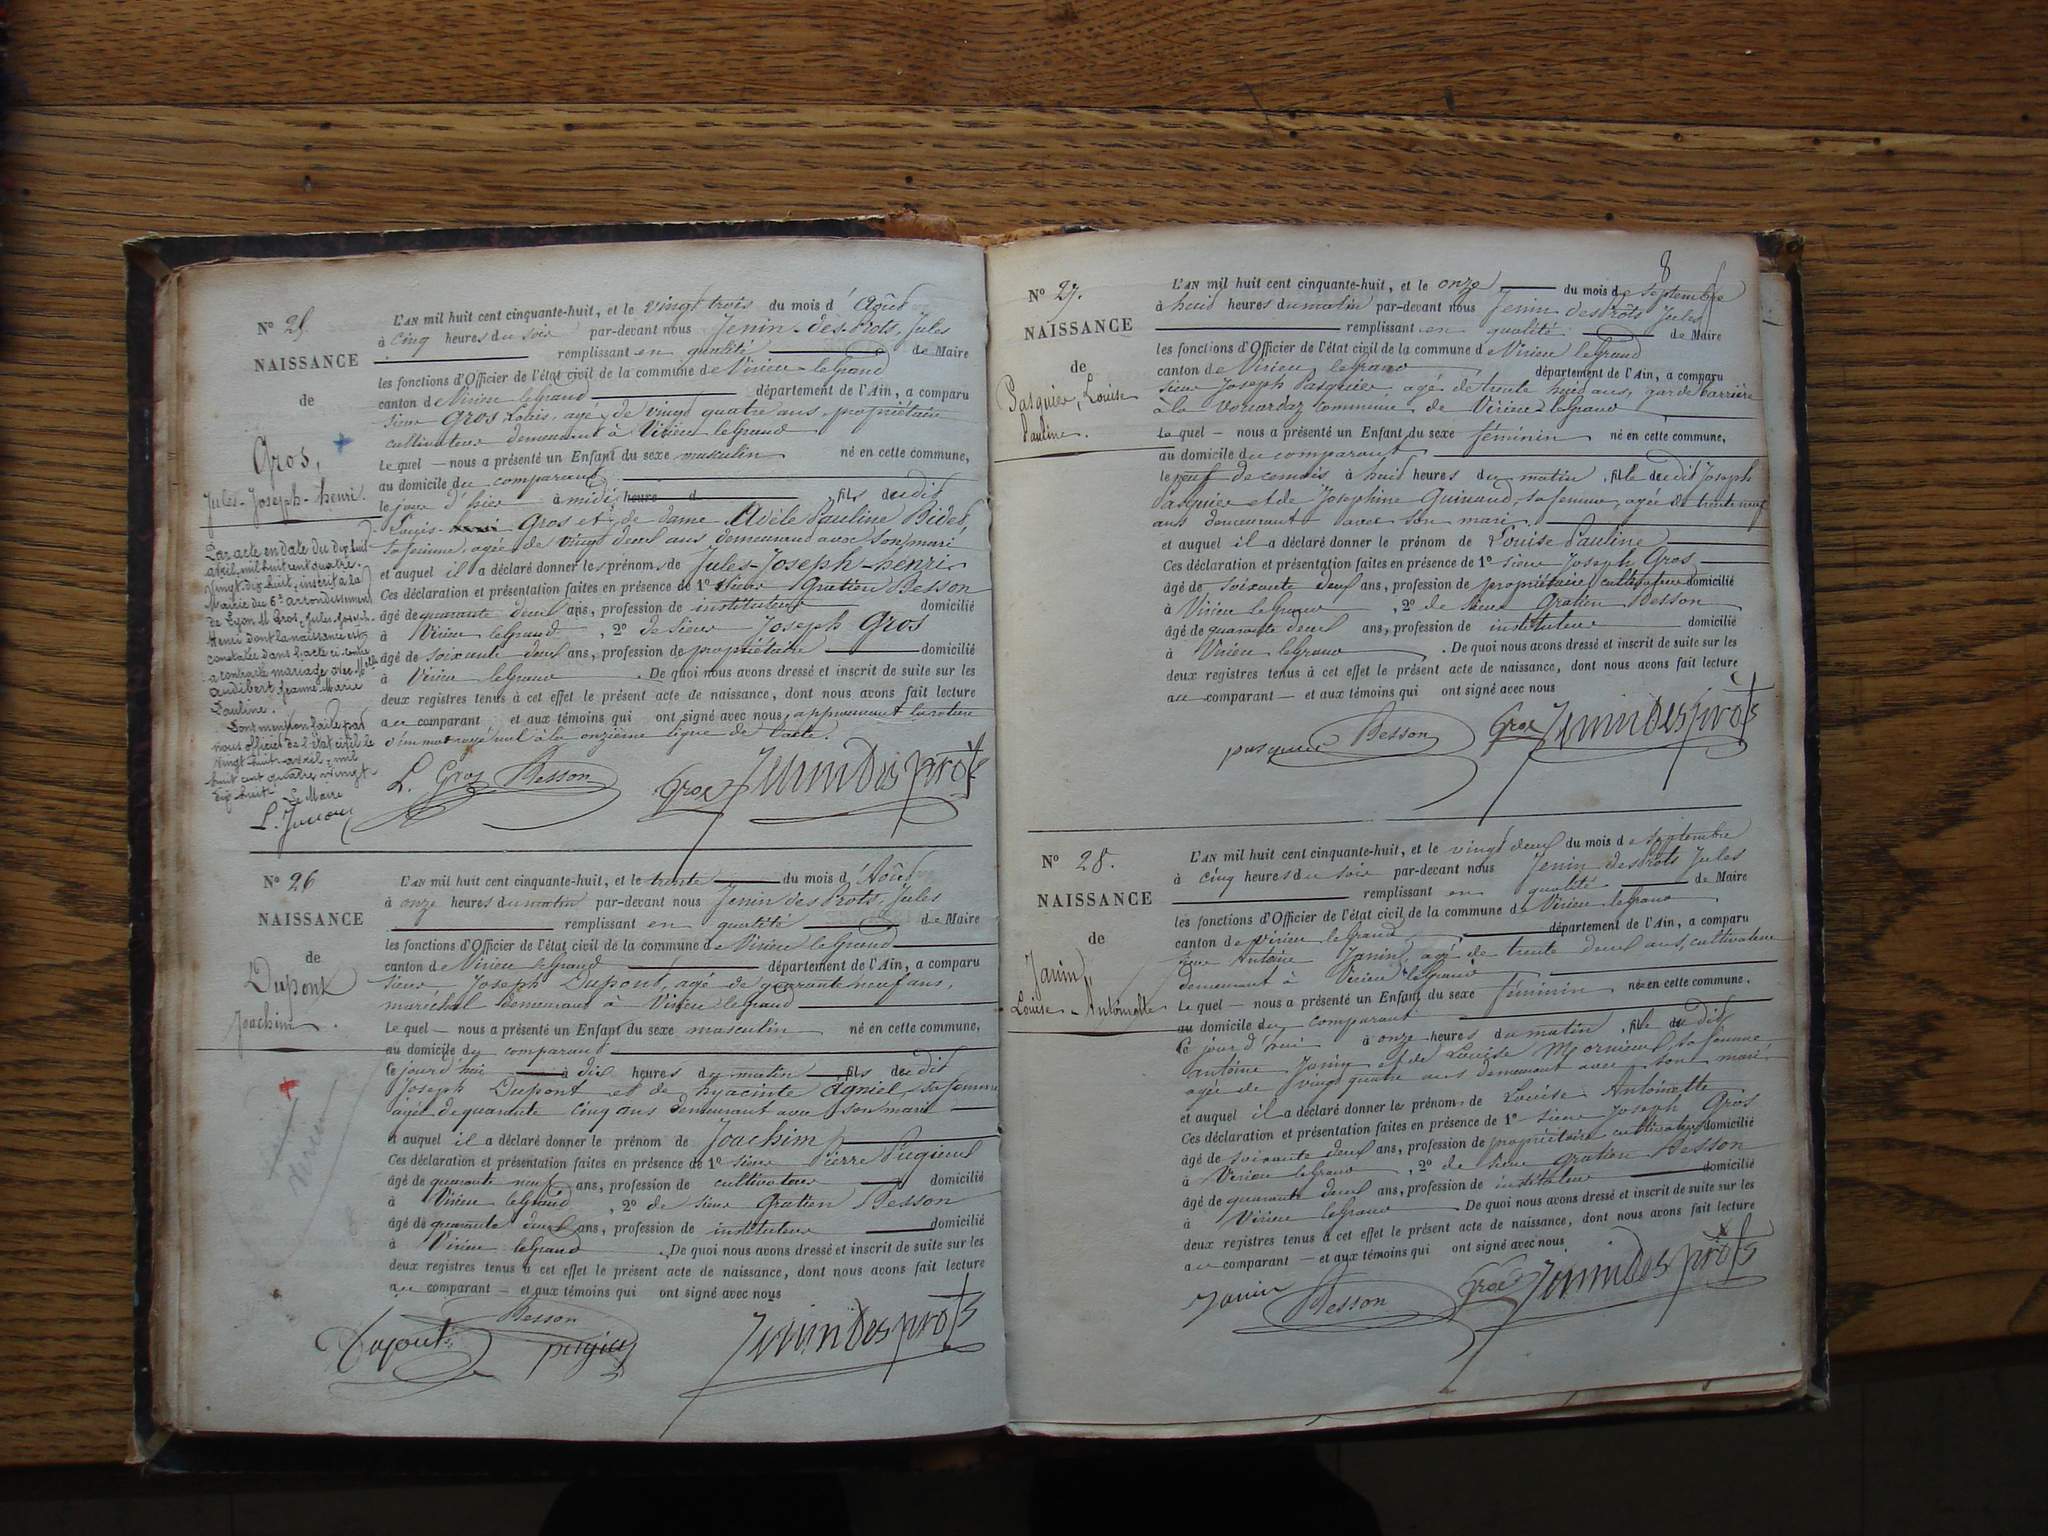 N° 25
NAISSANCE
de
Gros,
Jules-Joseph-henri.
Par acte en date du dix huit
avril mil huit cent quatre-
vingt-dix huit, inscrit à la
Mairie du 6e arrondissement
de Lyon M Gros, Jules, Joseph-
Henri dont la naissance est
constatée dans l'acte ci-contre
a contracté mariage avec Melle
Audibert Jeanne Marie
Pauline.
Dont mention faite par
nous officier de l'état civil le
vingt huit avril, mil
huit cent quatre vingt
dix huit. Le Maire
L'AN mil huit cent cinquante-huit, et le vingt trois du mois d'Août
à cinq heures du soir par-devant nous Jenin-des-Prots, Jules
remplissant en qualité de Maire
les fonctions d'Officier de l'état civil de la commune de Virieu leGrand
canton de Virieu legrand département de l'Ain, a comparu
sieur Gros Louis, agé de vingt quatre ans, propriétaire
cultivateur demeurant à Virieu legrand
Lequel nous a présenté un Enfant du sexe masculin né en cette commune,
au domicile du comparant
le jour d'hier à midi heure d fils du dit
Louis Gros et de dame Adèle Pauline Bidet,
sa femme, agée de vingt deux ans demeurant avec son mari
et auquel il a déclaré donner les prénoms de Jules-Joseph-henri
Ces déclaration et présentation faites en présence de 1° sieur Gratien Besson
âgé de quarante deux ans, profession de instituteur domicilié
à Virieu legrand, 2° de sieur Joseph Gros
âgé de soixante deux ans, profession de propriétaire domicilié
à Virieu legrand. De quoi nous avons dressé et inscrit de suite sur les
deux registres tenus à cet effet le présent acte de naissance, dont nous avons fait lecture
au comparant et aux témoins qui ont signé avec nous, approuvant la rature
d'un mot rayé nul à la onzième ligne de l'acte.
L. Gros Besson Gros Jenin des prots
N° 26
NAISSANCE
de
Dupont
Joachim.
L'AN mil huit cent cinquante-huit, et le trente du mois d'Août
à onze heures du matin par-devant nous Jenin des Prots, Jules
remplissant en qualité de Maire
les fonctions d'Officier de l'état civil de la commune de Virieu le Grand
canton de Virieu legrand département de l'Ain, a comparu
sieur Joseph Dupont, agé de quarante neuf ans,
maréchal demeurant à Virieu legrand
Lequel nous a présenté un Enfant du sexe masculin né en cette commune,
au domicile du comparant
ce jourd'hui à dix heures du matin fils du dit
Joseph Dupont et de hyacinte Agniel, sa femme
agée de quarante cinq ans demeurant avec son mari
et auquel il a déclaré donner le prénom de Joachim
Ces déclaration et présentation faites en présence de 1° sieur Pierre Pugieux
âgé de quarante neuf ans, profession de cultivateur domicilié
à Virieu legrand, 2° de sieur Gratien Besson
âgé de quarante deux ans, profession de instituteur domicilié
à Virieu legrand. De quoi nous avons dressé et inscrit de suite sur les
deux registres tenus à cet effet le présent acte de naissance, dont nous avons fait lecture
au comparant et aux témoins qui ont signé avec nous
Besson
Dupont Jenin des prots
8
N° 27.
NAISSANCE
de
Pasquier, Louise
Pauline.
L'AN mil huit cent cinquante-huit, et le onze du mois de septembre
à huit heures du matin par-devant nous Jenin des Prots Jules
remplissant en qualité de Maire
les fonctions d'Officier de l'état civil de la commune de Virieu leGrand
canton de Virieu legrand département de l'Ain, a comparu
sieur Joseph Pasquier agé de trente huit ans, garde barrière
à la commune de Virieu-legrand
Lequel nous a présenté un Enfant du sexe féminin né en cette commune,
au domicile du comparant
le neuf de ce mois à huit heures du matin, fille du dit Joseph
Pasquier et de Josephine Guinaud, sa femme, agée de trente neuf
ans demeurant avec son mari
et auquel il a déclaré donner le prénom de Louise Pauline
Ces déclaration et présentation faites en présence de 1° sieur Joseph Gros
âgé de soixante deux ans, profession de propriétaire cultivateur domicilié
à Virieu legrand, 2° de sieur Gratien Besson
âgé de quarante deux ans, profession de instituteur domicilié
à Virieu legrand. De quoi nous avons dressé et inscrit de suite sur les
deux registres tenus à cet effet le présent acte de naissance, dont nous avons fait lecture
au comparant et aux témoins qui ont signé avec nous
pasquier Besson Gros Jenin des prots
N° 28.
NAISSANCE
de
Janin,
Louise-Antoinette
L'AN mil huit cent cinquante-huit, et le vingt deux du mois de septembre
à cinq heures du soir par-devant nous Jenin des Prots Jules
remplissant en qualité de Maire
les fonctions d'Officier de l'état civil de la commune de Virieu legrand
canton de virieu legrand département de l'Ain, a comparu
sieur Antoine Janin, agé de trente deux ans, cultivateur
demeurant à Virieu legrand
Lequel nous a présenté un Enfant du sexe féminin né en cette commune.
au domicile du comparant
ce jourd'hui à onze heures du matin, fille du dit
antoine Janin et de Louise Mornieux, sa femme
agée de vingt quatre ans demeurant avec son mari
et auquel il a déclaré donner les prénoms de Louise Antoinette
Ces déclaration et présentation faites en présence de 1° sieur Joseph Gros
âgé de soixante deux ans, profession de propriétaire cultivateur domicilié
à Virieu legrand, 2° de sieur Gratien Besson
âgé de quarante deux ans, profession de instituteur domicilié
à Virieu legrand. De quoi nous avons dressé et inscrit de suite sur les
deux registres tenus à cet effet le présent acte de naissance, dont nous avons fait lecture
au comparant et aux témoins qui ont signé avec nous
Janin Besson Gros Jenin des prots